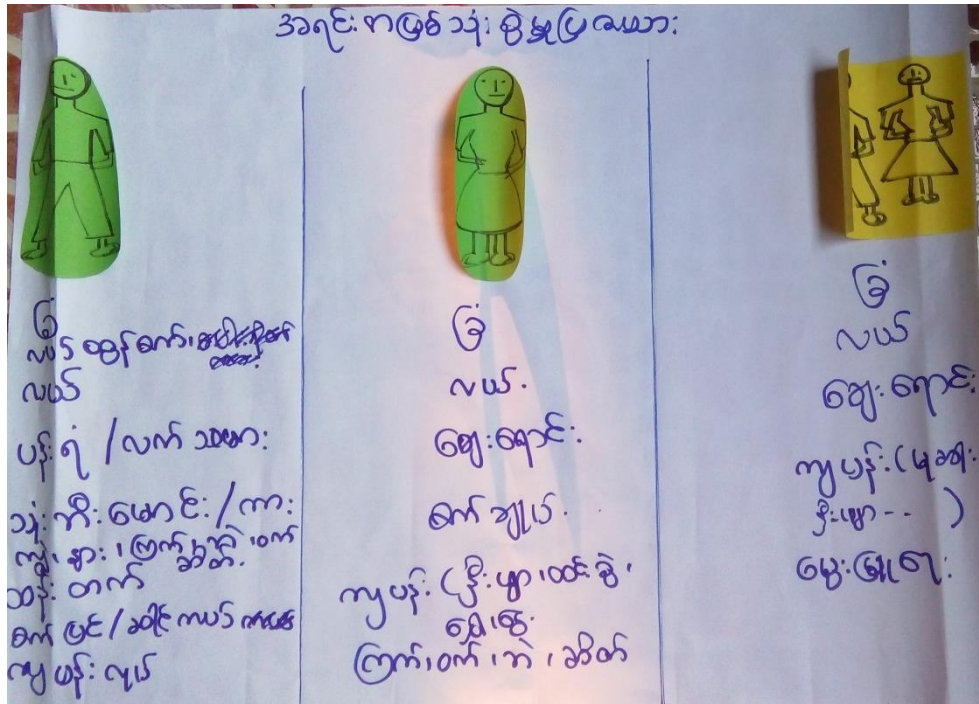 အရင်းအမြစ်သုံးစွဲမှုပြဇယား
ခြံ
လယ်ထွန်စက်၊
လယ်
ပန်းရံ / လက်သမား
သုံးဘီးမောင်း / ကား
ကျွဲ၊ နွား၊ ကြက်၊ ဘဲ၊ ဝက်
ဆိတ်
သန်းတက်
စက်ပြင် /
ကျပန်းလုပ်
ခြံ
လယ်.
ဈေးရောင်း
စက်ချုပ်.
ကျပန်း (နှီးဖျာ၊ ထင်းခွေ၊
ကြက်၊ ဝက်၊ ဘဲ၊ ဆိတ်
ခြံ
လယ်
ဈေးရောင်း
ကျပန်း (
နှီးဖျာ -- )
မွေးမြူရေး